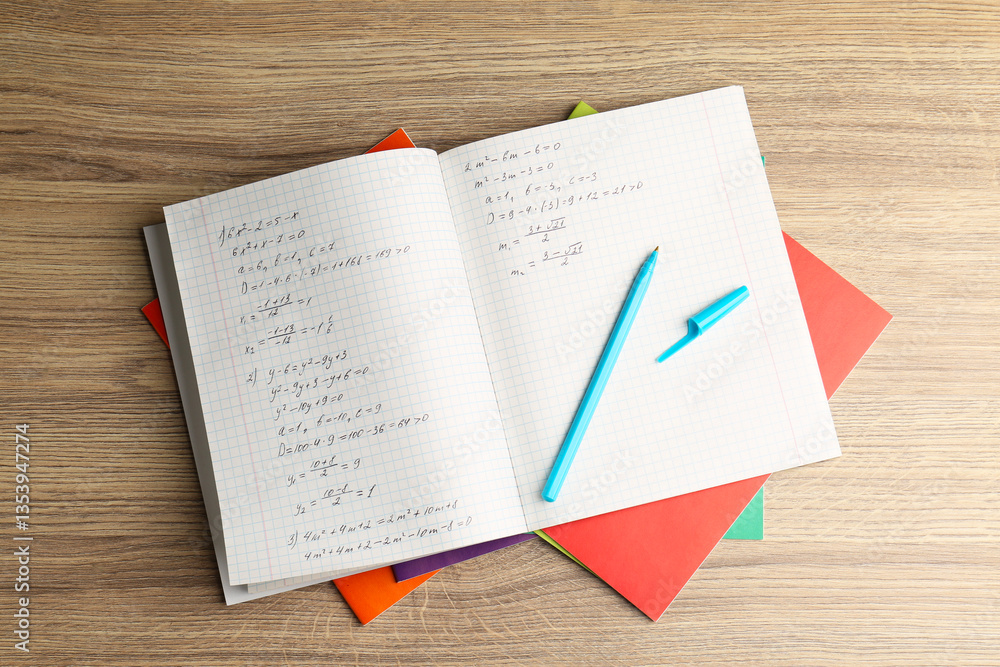 1) 6x²-2=5-x
6x²+x-7=0
a=6, b=1, c=7
D=1-4·6·(-7)=1+168=169>0
x₁= (-1+13)/12 =1
x₂= (-1-13)/-12 =-1 1/6
2) y-6=y²-9y+3
y²-9y+3-y+6=0
y²-10y+9=0
a=1, b=-10, c=9
D=100-4·9=100-36=64>0
y₁= (10+8)/2 =9
y₂= (10-8)/2 =1
3) 4m²+4m+2=2m²+10m+8
4m²+4m+2-2m²-10m-8=0
2m²-6m-6=0
m²-3m-3=0
a=1, b=-3, c=-3
D=9-4·(-3)=9+12=21>0
m₁= (3+√21)/2
m₂= (3-√21)/2
Adobe Stock | #1353947274